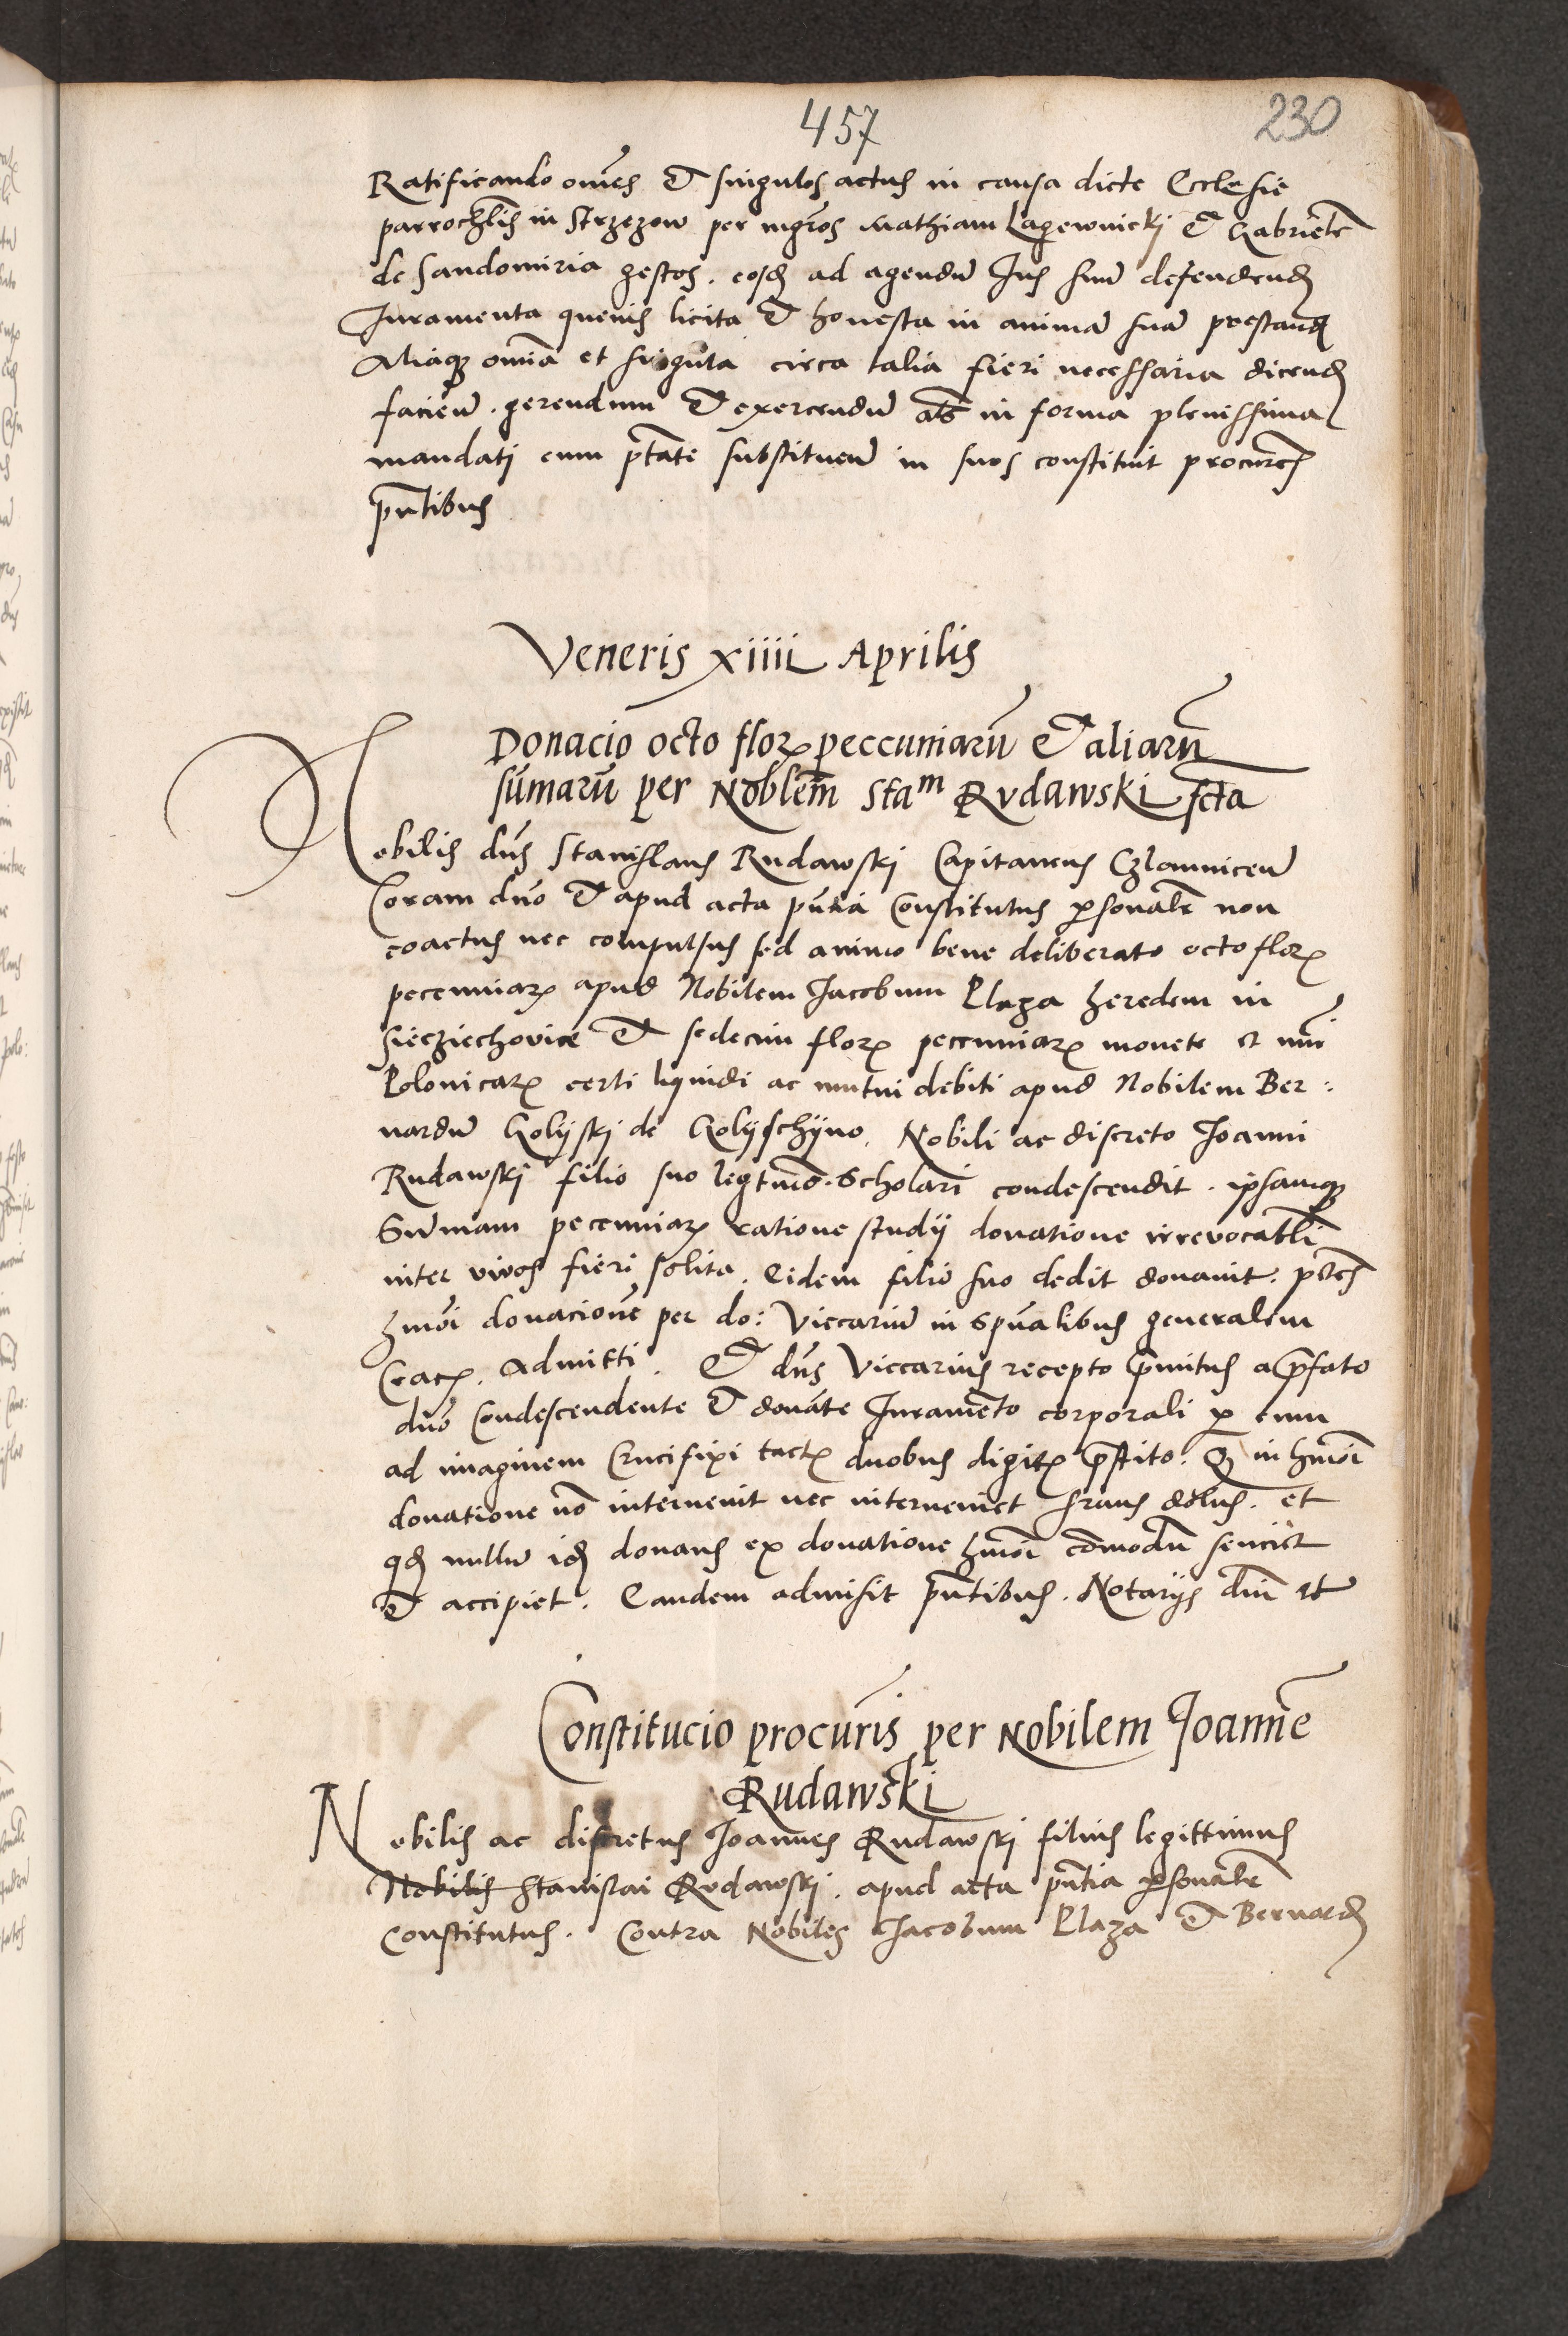 457
230
Ratificando om̄es et singulos actus in causa dicte Ecclesie
parrochl̄is in Strzezow per mgr̄os Mathiam Lagewnickj et Gabrielē
de Sandomiria gestos. eosđ ad agendū Jus suū defendendđ
Juramenta quevis licita et honesta in animā suā prestandđ
Aliaqȝ om̄ia et singula circa talia fieri necessaria dicendđ
faciend̄. gerendum et exercendū al̄s in forma plenissima
mandatj cum p̄tate substituend̄ in suos constituit procur̄es
pn̄tibus
Veneris xiiii Aprilis
Donacio octo floꝝ peccuniarū et aliarū
sūmarū per Nobl̄em Staᵐ Rvdawski fcta
Nobilis dn̄s Stanislaus Rudawskj Capitaneus Czlomnicen̄
Coram dn̄o et apud acta pn̄tia Constitutus ꝑsonalr̄ non
coactus nec compulsus sed animo bene deliberato octo floꝝ
pecuniaꝝ apud Nobilem Jacobum Plaza heredem in
Sieczichovice et sedecim floꝝ pecuniaꝝ monete et nūi
Polonicaꝝ certi liquidi ac mutui debiti apud Nobilem Ber:
nardū Golijskj de Golijschijno. Nobili ac discreto Joanni
Rudawskj filio suo legtīmo. Scholari condescendit. ipsamqȝ
Sūmam pecuniaꝝ ratione studij donatione irrevocabl̄i
inter vivos fieri solita. Eidem filio suo dedit donavit. pēts
hmōi donacionē per do: Viccariū in Spūalibus generalem
Crac̄. Admitti. Et dn̄s Viccarius recepto p̄mitus a p̄fato
dn̄o Condescendente et donāte Juramēto corporali ꝑ eum
ad imaginem Crucifixi tactꝭ duobus digitꝭ p̄stito. Qȝ in hmōi
donatione nō intervenit nec interveniet fraus dolus. et
qđ nullū iđ donans ex donatione hmōi cōmodū senciet
et accipiet. Eandem admisit pn̄tibus. Notarijs dm̄ et
Constitucio procur̄is per Nobilem Joannē
Rudawski
Nobilis ac discretus Joannes Rudawskj filius legittimus
Nobilis Stanislai Rvdawskj. apud acta pn̄tia ꝑsonalr̄
Constitutus. Contra Nobiles Jacobum Plaza et Bernardđ